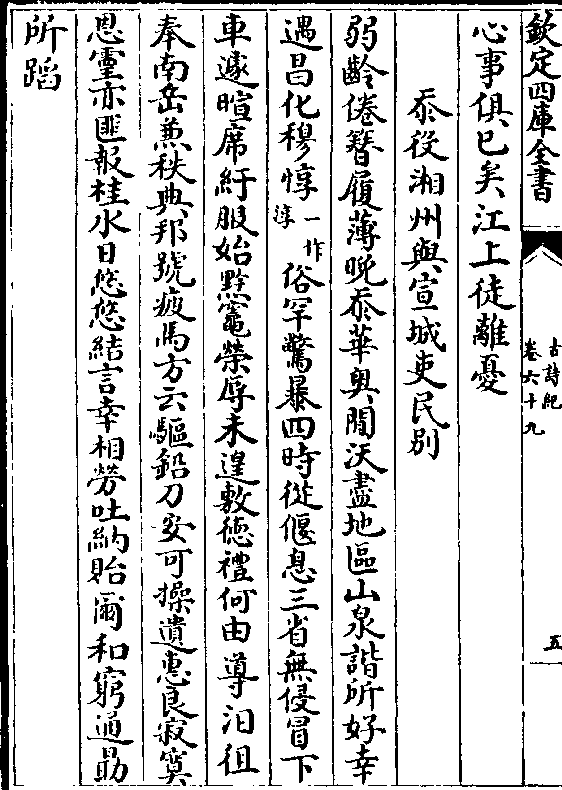 欽定四庫全書
古詩紀
卷六十九
五
心事俱已矣江上徒離憂
忝役湘州與宣城吏民别
弱齡倦簪履薄晚忝華奥閒沃盡地區山泉諧所好幸
遇昌化穆惇一作淳俗罕驚暴四時從偃息三省無侵冒下
車遽暄席紆服始黔竈榮辱未遑敷德禮何由導汨徂
奉南岳兼秩典邦號疲馬方云驅鉛刀安可操遺惠良寂寞
恩靈亦匪報桂水日悠悠結言幸相勞吐納貽爾和窮通勗
所蹈